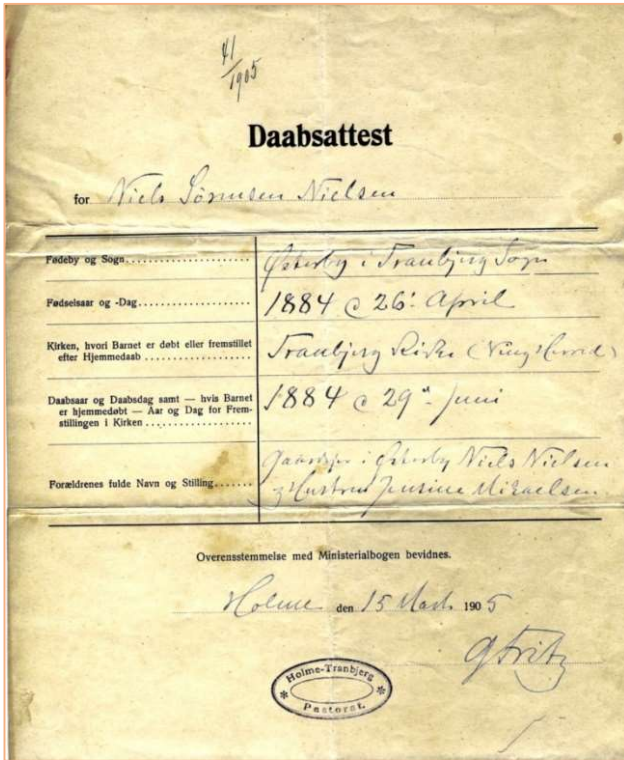 41
1905
Daabsattest
for Niels Sørensen Nielsen
Fødeby og Sogn Østerby i Tranbjerg Sogn
Fødselsaar og -Dag 1884 d 26' April
Kirken, hvori Barnet er døbt eller fremstillet
efter Hjemmedaab Tranbjerg Kirke (Ning Herred)
Daabsaar og Daabsdag samt — hvis Barnet
er hjemmedøbt — Aar og Dag for Frem-
stillingen i Kirken 1884 d 29" Juni
Gaardejer i Østerby Niels Nielsen
Forældrenes fulde Navn og Stilling og Hustru Jensine Mikaelsen
Overensstemmelse med Ministerialbogen bevidnes.
Holme den 15 Mart. 1905
G Fritz
Holme-Tranbjerg
Pastorat.